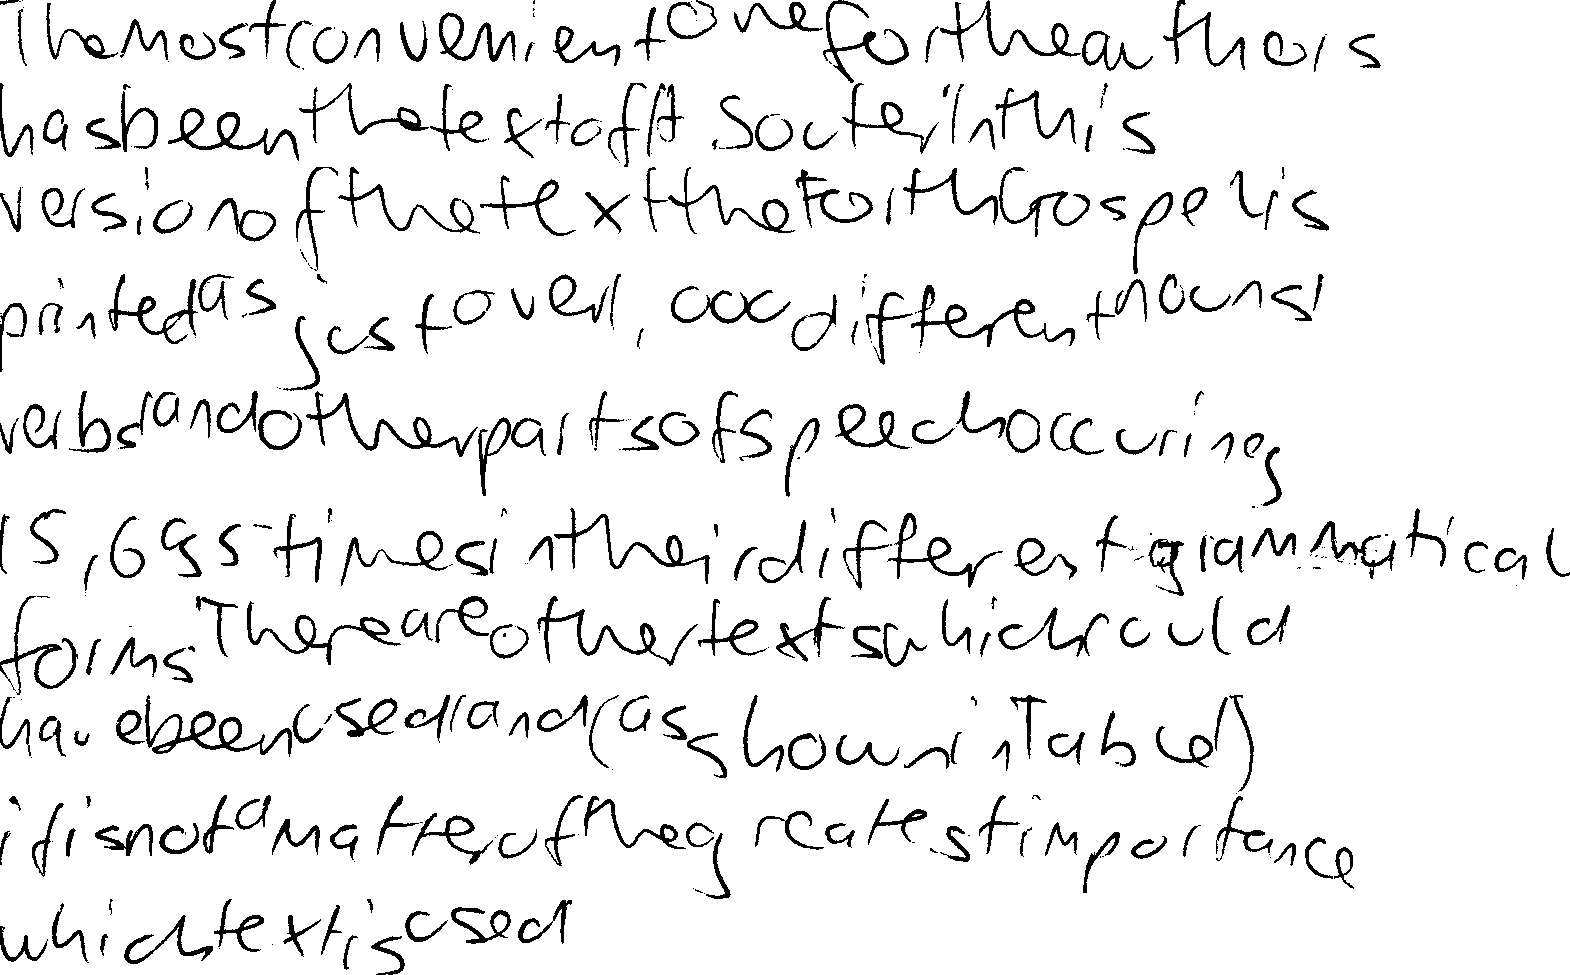 The most convenient one for the authors
has been the text of A. Souter. In this
version of the text the Forth Gospel is
printed as just over 1,000 different nouns,
verbs, and other parts of speech occuring
15,695 times in their different grammatical
forms. There are other texts which could
have been used, and (as shown in Table 1)
it is not a matter of the greatest importance
which text is used